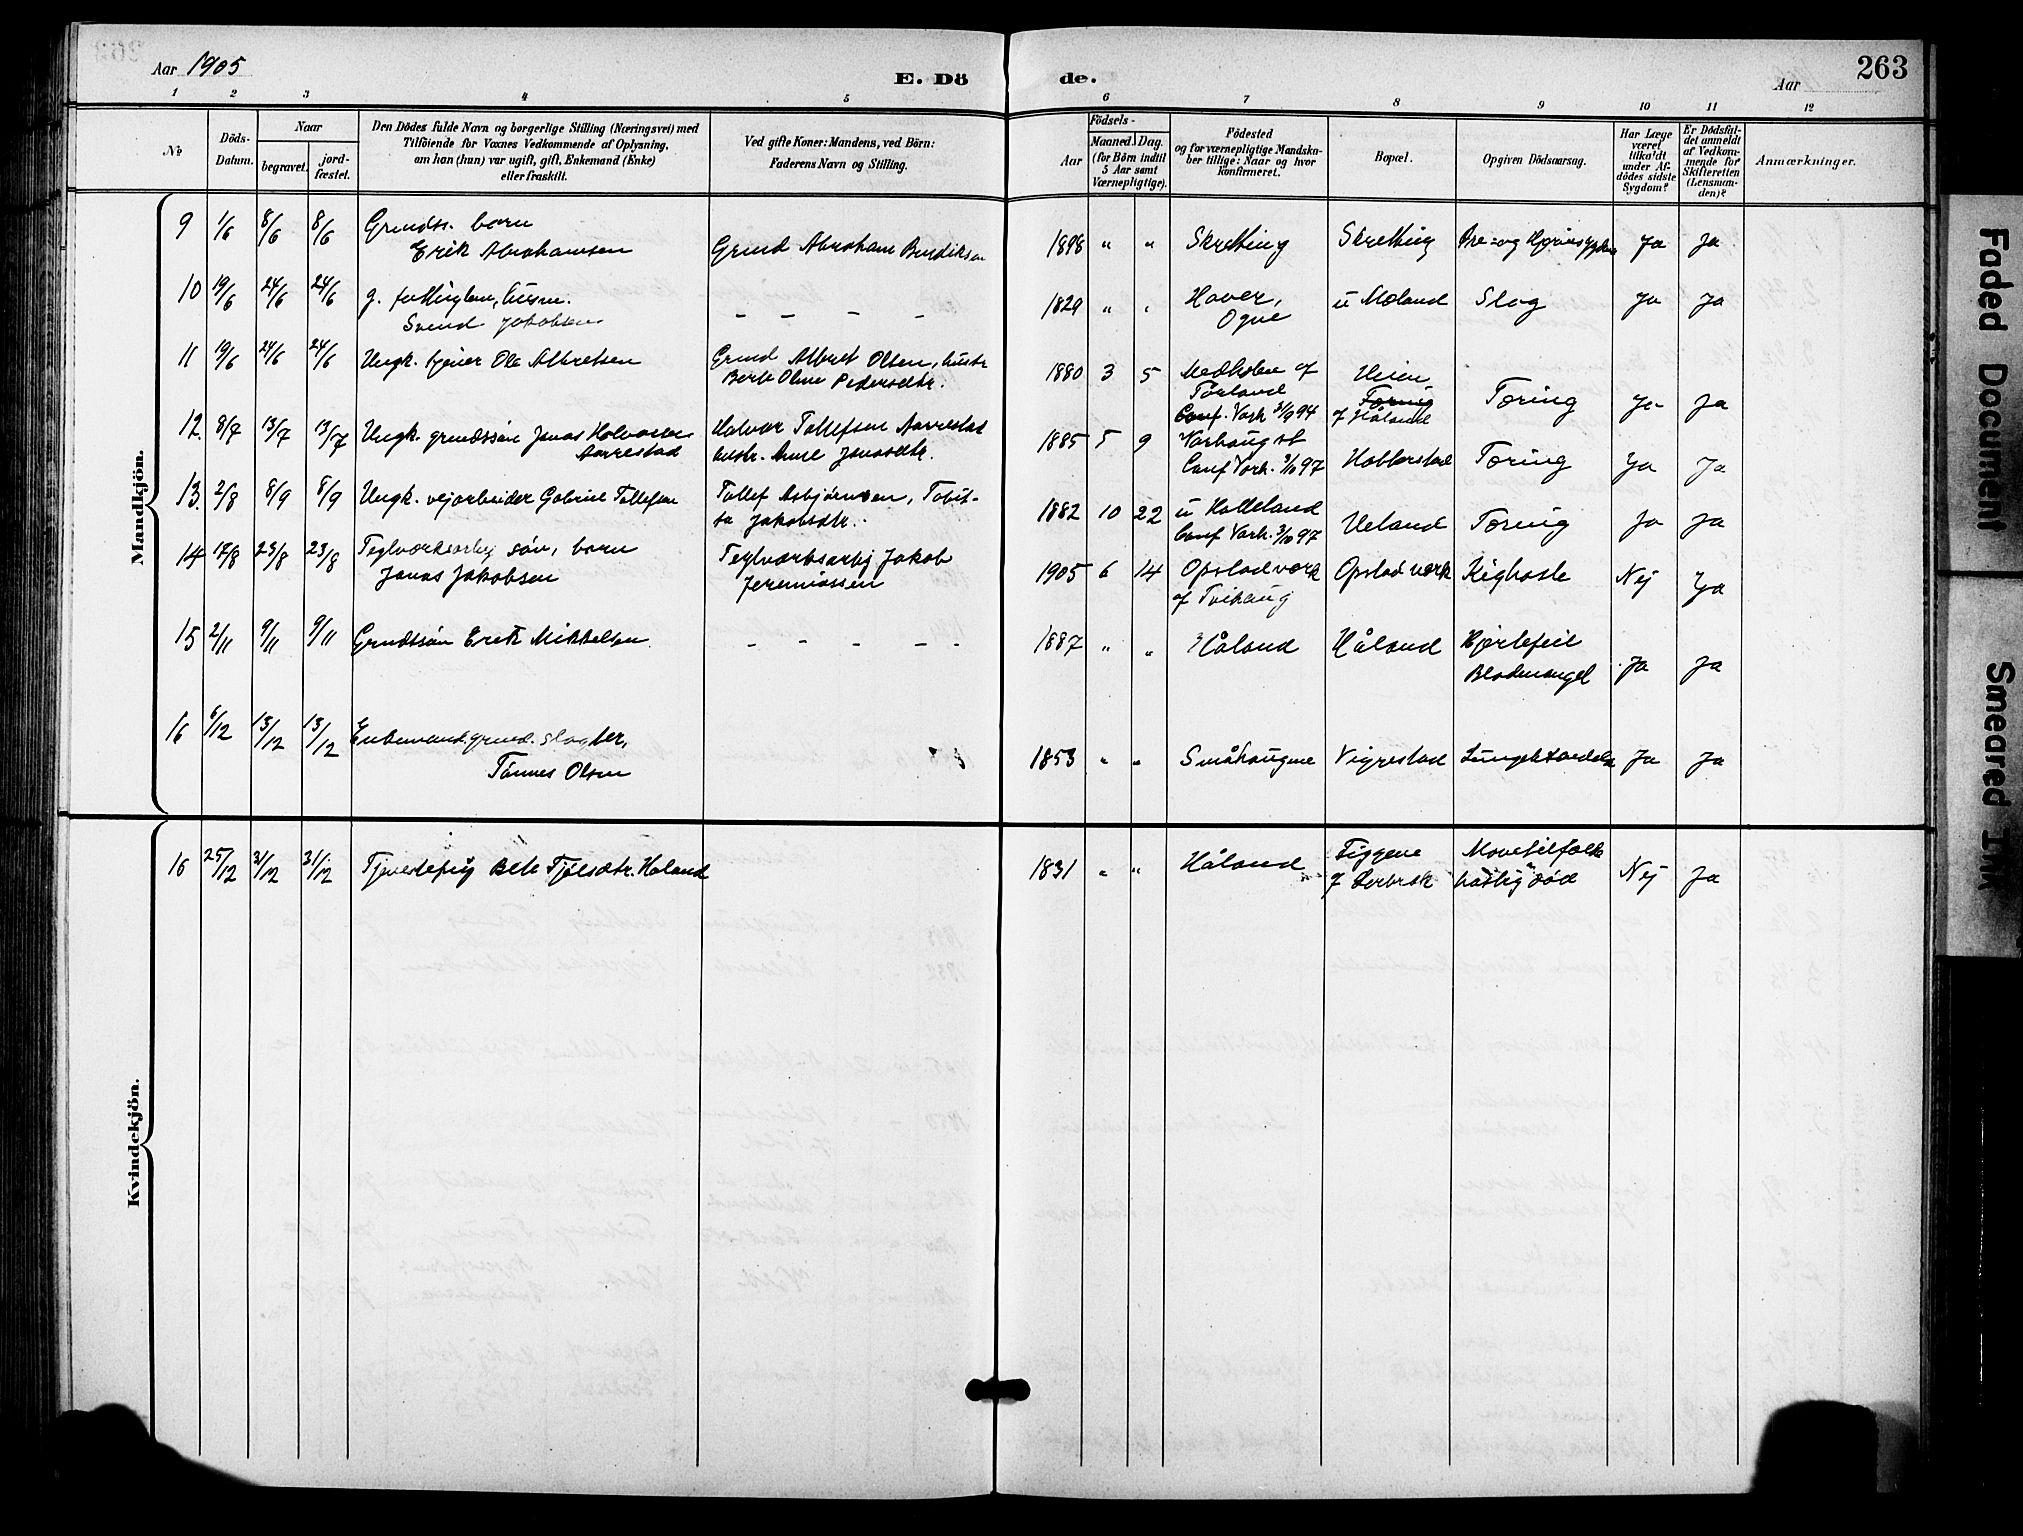 Aar 1905
E. Dö
de.
Aar
263
1 2 3 4 5 6 7 8 9 10 11 12
No
Döds-
Datum.
Naar
begravet.
jord-
fæstet.
Den Dödes fulde Navn og borgerlige Stilling (Næringsvei) med
Tilföiende for Voxnes Vedkommende af Oplysning,
om han (hun) var ugift, gift, Enkemand (Enke)
eller fraskilt.
Ved gifte Koner: Mandens, ved Börn:
Faderens Navn og Stilling.
Födsels-
Aar
Maaned. Dag.
(for Börn indtil
5 Aar samt
Værnepligtige).
Födested
og for værnepligtige Mandska-
ber tillige: Naar og hvor
konfirmeret.
Bopæl.
Opgiven Dödsaarsag.
Har Læge
været
tilkaldt
under Af-
dödes sidste
Sygdom?
Er Dödsfal-
det anmeldt
af Vedkom-
mende for
Skifteretten
(Lensman-
den)?
Anmærkninger.
Mandkjön.
9 1/6 8/6 8/6 Grundss. barn
Erik Abrahamsen
Grmd Abraham Bendiksen
1898 " " Skretting Skretting Øre- og Ja Ja
10 19/6 24/6 24/6 g.
Svend Jakobsen
- - - -
1829 " " Haver,
Ogne
u Moland Slag Ja Ja
11 19/6 24/6 24/6 Ungk. tjener Ole Albretsen
Grmd Albret Olsen, hustr
Berte Oline Pedersdtr.
1880 3 5
Torland
Conf. Varh.
af Håland
Tæring Ja Ja
12. 8/7 13/7 13/7 Ungk. grundssøn Jonas Halvorsen
Aarrestad
Halvor Tollefsen Aarrestad
hustr. Anne Jonasdtr.
1885 5 9 Varhaug st
Conf Varh. 3/10 97
Tæring Ja Ja
13. 2/8 8/9 8/9 Ungk. vejarbeider Gabriel Tollefsen
Tollef Asbjørnsen, Tobit-
ta Jakobsdtr.
1882 10 22 u Hatteland
Conf Varh. 3/10 97
Ueland Tæring Ja Ja
14 17/8 23/8 23/8 Teglværksarbj søn, barn
Jonas Jakobsen
Teglværksarbj Jakob
Jeremiassen
1905 6 14 Opstad værk
af Tvihaug
Opstad værk Kighoste Nej Ja
15 2/11 9/11 9/11 Grmdssøn Erik Mikkelsen
- - - - -
1887 " " Håland Håland Hjertefeil
Blodmangel
Ja Ja
16 6/12 13/12 13/12 Enkemand. grmd. slagter,
Tønnes Olsen
1853 " " Småhaugene Vigrestad Ja Ja
Kvindekjön.
16 25/12 31/12 31/12 Tjenestepig Berte Håland
1831 " " Håland
hastig død Nej Ja
Faded Document
Smeared Ink